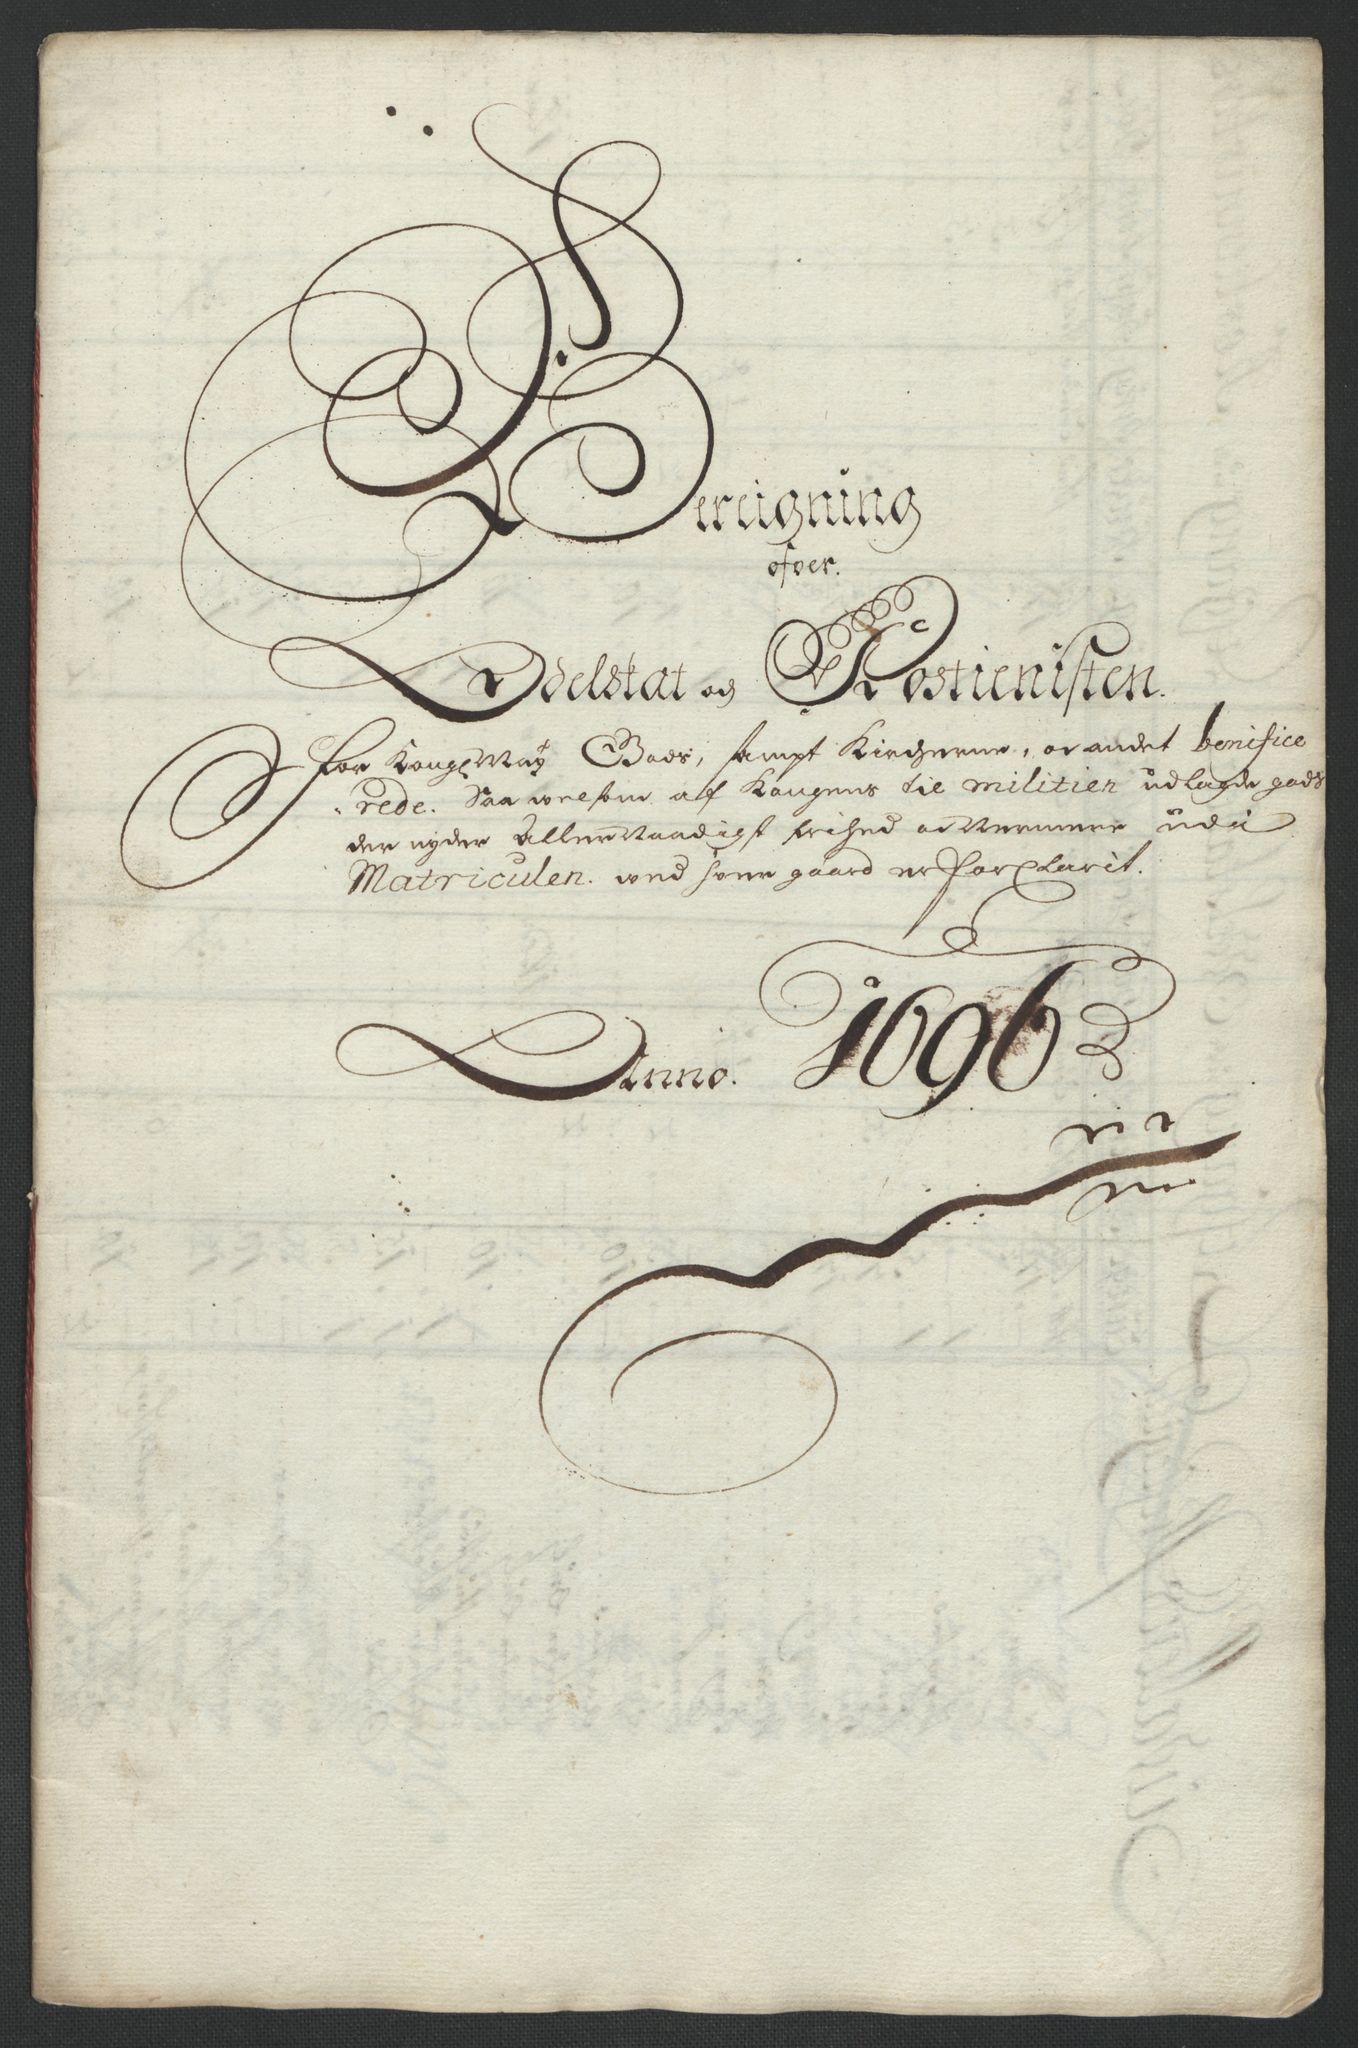 Bereigning
ofver.
Odelskat og Rostienisten.
for Kongl May Gods, sampt Kircherne, og andet benifice
rede. Saa velsom af Kongens til militien udlagde gods
der nyder Allernaadigst frihed og nermere udi
Matriculen. ved hver gaard er forklarit.
Anno. 1696